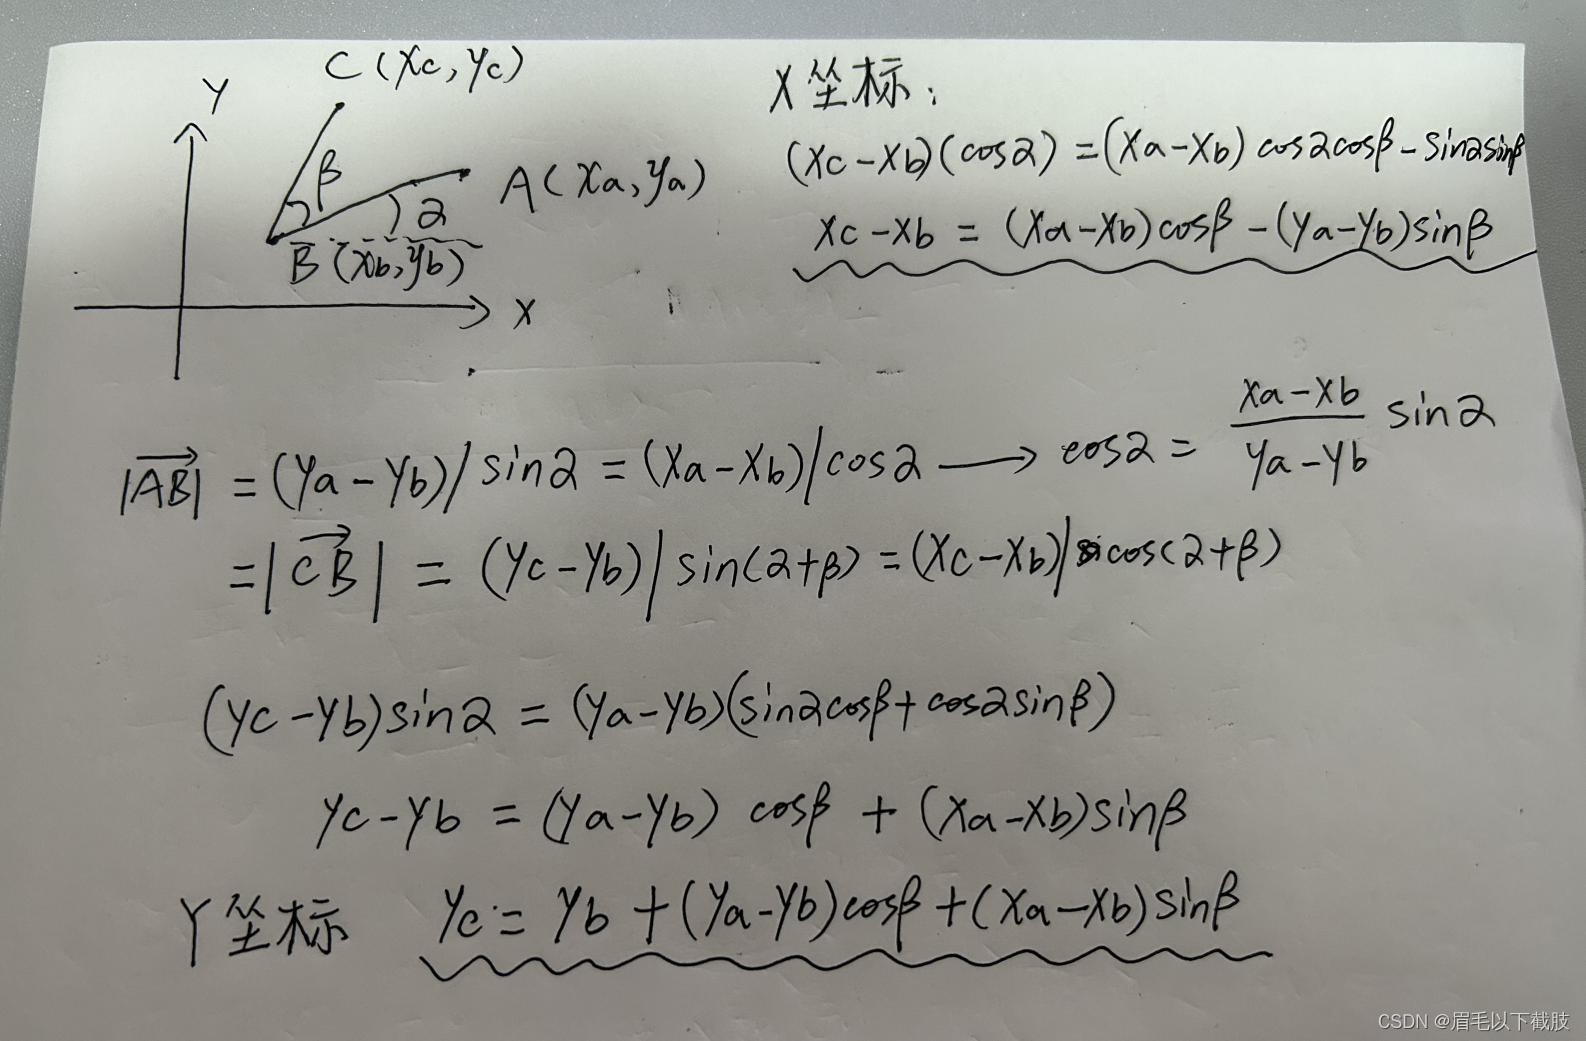 C (Xc, Yc)
Y
β
A (Xa, Ya)
α
B (Xb, Yb)
X
X 坐标:
(Xc-Xb)(cosα) = (Xa-Xb) cosαcosβ - sinαsinβ
Xc-Xb = (Xa-Xb)cosβ - (Ya-Yb)sinβ
|AB| = (Ya-Yb)/sinα = (Xa-Xb)/cosα → cosα = (Xa-Xb)/(Ya-Yb) sinα
= |CB| = (Yc-Yb)/sin(α+β) = (Xc-Xb)/cos(α+β)
(Yc-Yb)sinα = (Ya-Yb)(sinαcosβ + cosαsinβ)
Yc-Yb = (Ya-Yb) cosβ + (Xa-Xb)sinβ
Y 坐标 Yc = Yb + (Ya-Yb)cosβ + (Xa-Xb)sinβ
CSDN @眉毛以下截肢